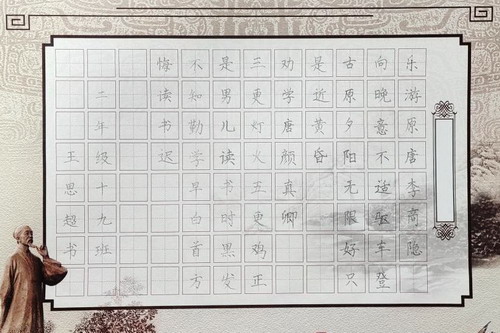 乐游原唐李商隐
向晚意不适驱车登
古原夕阳无限好只
是近黄昏
劝学唐颜真卿
三更灯火五更鸡正
是男儿读书时黑发
不知勤学早白首方
悔读书迟
二年级十九班
王思超书